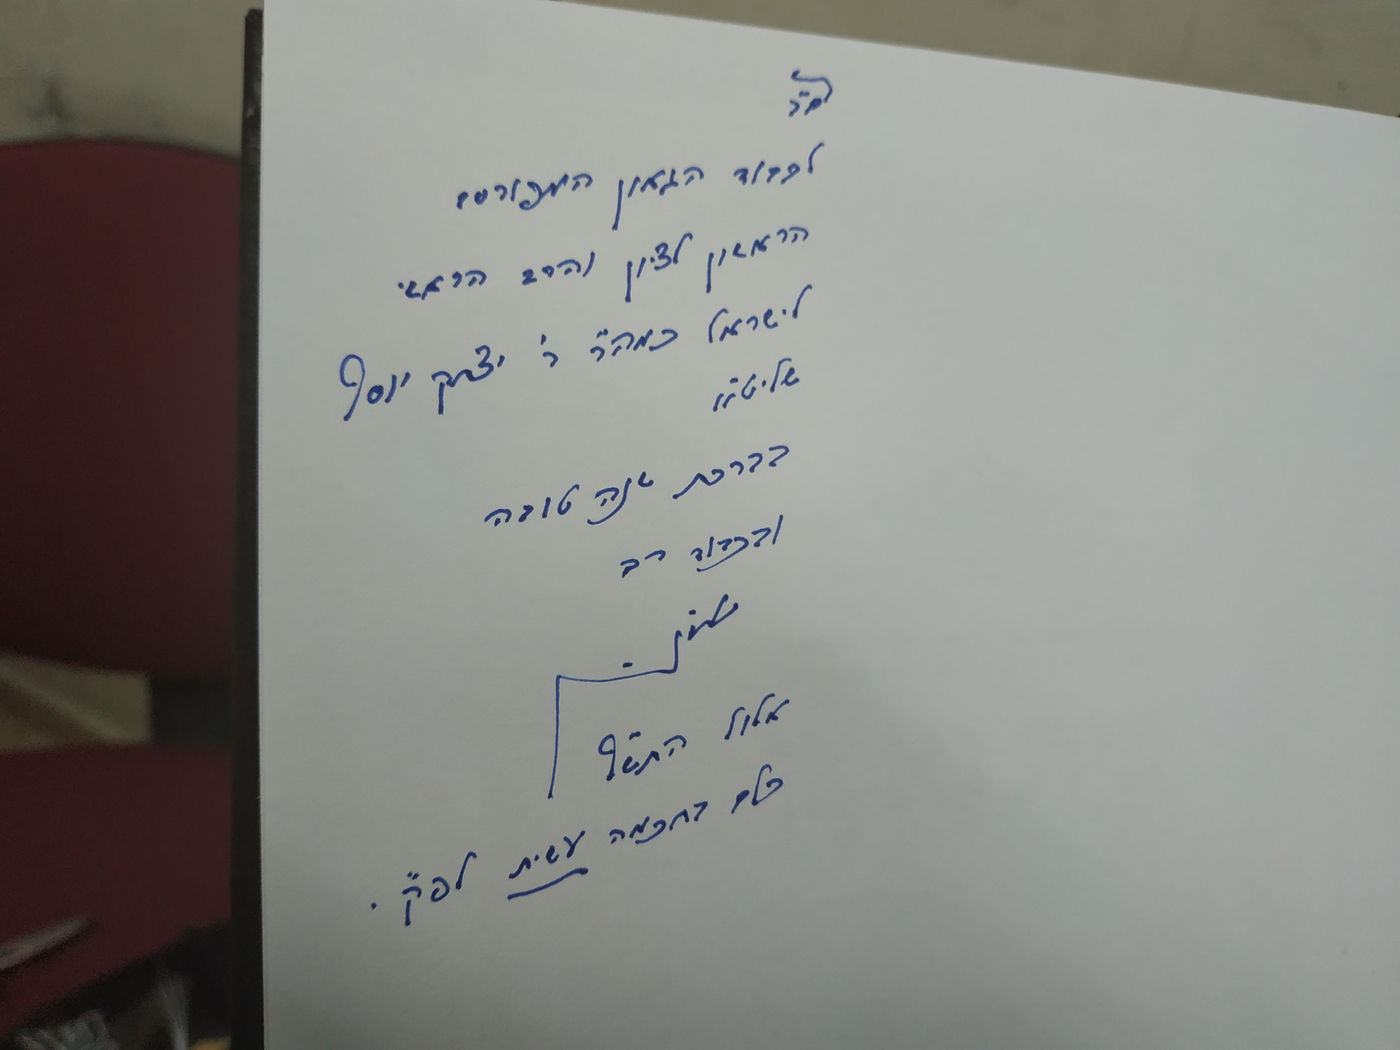 לכבוד הגאון המפורסם
הראשון לציון והרב הראשי
לישראל כמהר"ר ר' יצחק יוסף
שליט"א
בברכת שנה טובה
ובכבוד רב
אלול התש"ף
כלם בחכמה עשית לפ"ק.